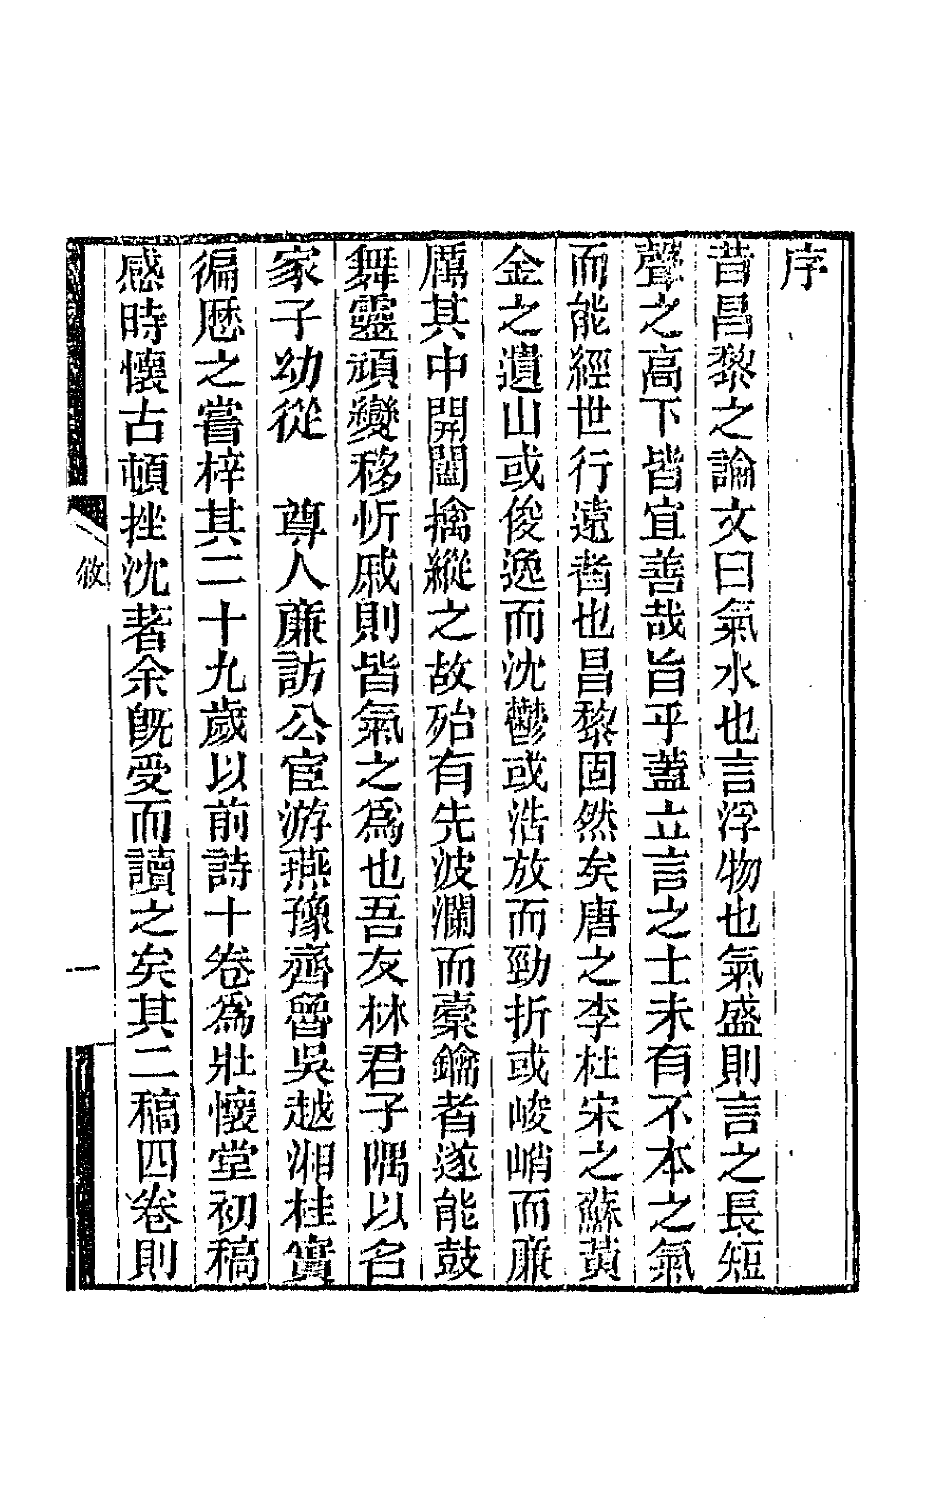 序
昔昌黎之論文曰氣水也言浮物也氣盛則言之長短
聲之高下皆宜善哉旨乎蓋立言之士未有不本之氣
而能經世行遠者也昌黎固然矣唐之李杜宋之蘇黃
金之遺山或俊逸而沈鬱或浩放而勁折或峻峭而廉
厲其中開闔擒縱之故殆有先波瀾而橐鑰者遂能鼓
舞靈頑變移忻戚則皆氣之為也吾友林君子隅以名
家子幼從　尊人廉訪公宦游燕豫齊魯吳越湘桂實
徧歷之嘗梓其二十九歲以前詩十卷為壯懷堂初稿
感時懷古頓挫沈著余旣受而讀之矣其二稿四卷則
敘
一